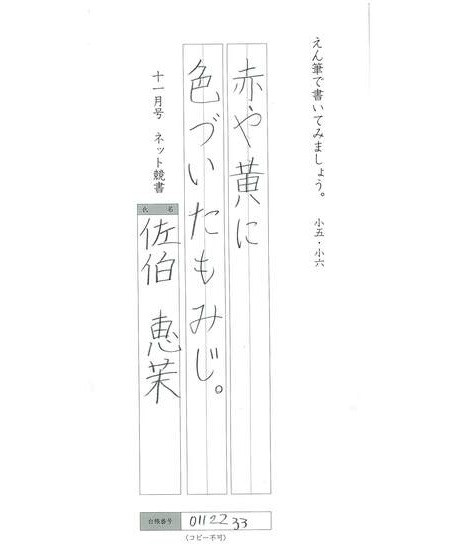 えん筆で書いてみましょう。 小五・小六
赤や黄に
色づいたもみじ。
十一月号 ネット競書
氏名
佐伯 恵茉
台帳番号 01122233
(コピー不可)